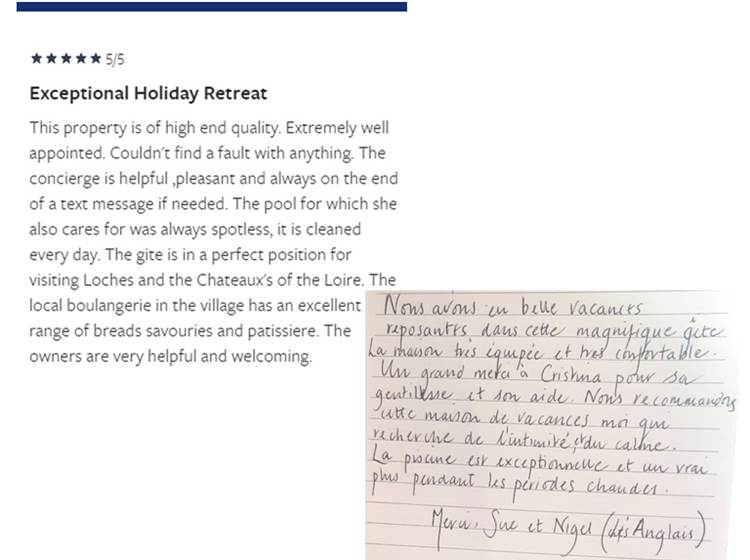 ★★★★★ 5/5
Exceptional Holiday Retreat
This property is of high end quality. Extremely well
appointed. Couldn't find a fault with anything. The
concierge is helpful ,pleasant and always on the end
of a text message if needed. The pool for which she
also cares for was always spotless, it is cleaned
every day. The gite is in a perfect position for
visiting Loches and the Chateaux's of the Loire. The
local boulangerie in the village has an excellent
range of breads savouries and patissiere. The
owners are very helpful and welcoming.
Nous avons en belle vacances
reposantes dans cette magnifique gîte
La maison très équipée et très confortable.
Un grand merci à Cristina pour sa
gentillesse et son aide. Nous recommandons
cette maison de vacances moi qui
recherche de l'intimité, et du calme.
La piscine est exceptionnelle et un vrai
plus pendant les périodes chaudes.
Merci, Sue et Nigel (des Anglais)